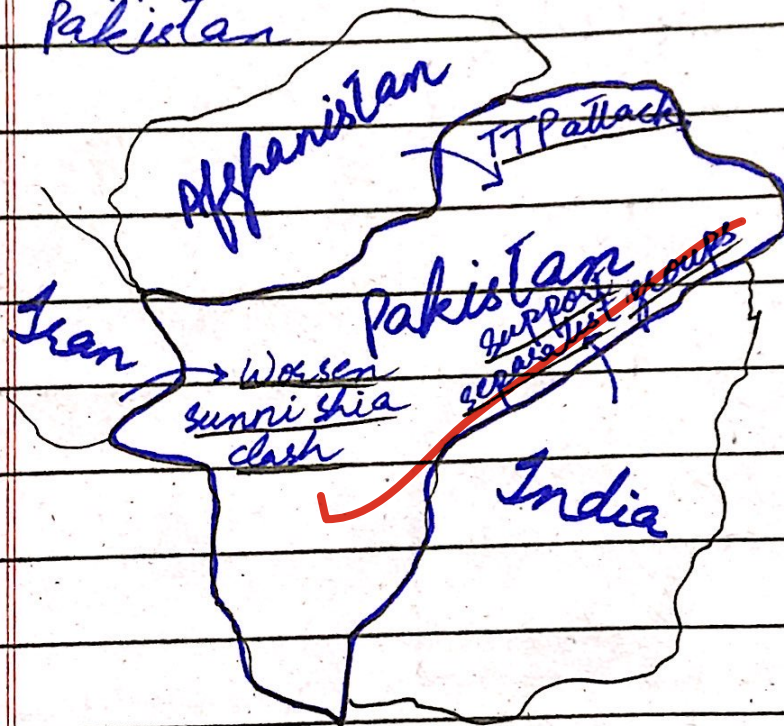 Pakistan
Afghanistan
TTP attack
Pakistan
support
separatist groups
Iran
Worsen
sunni shia
clash
India